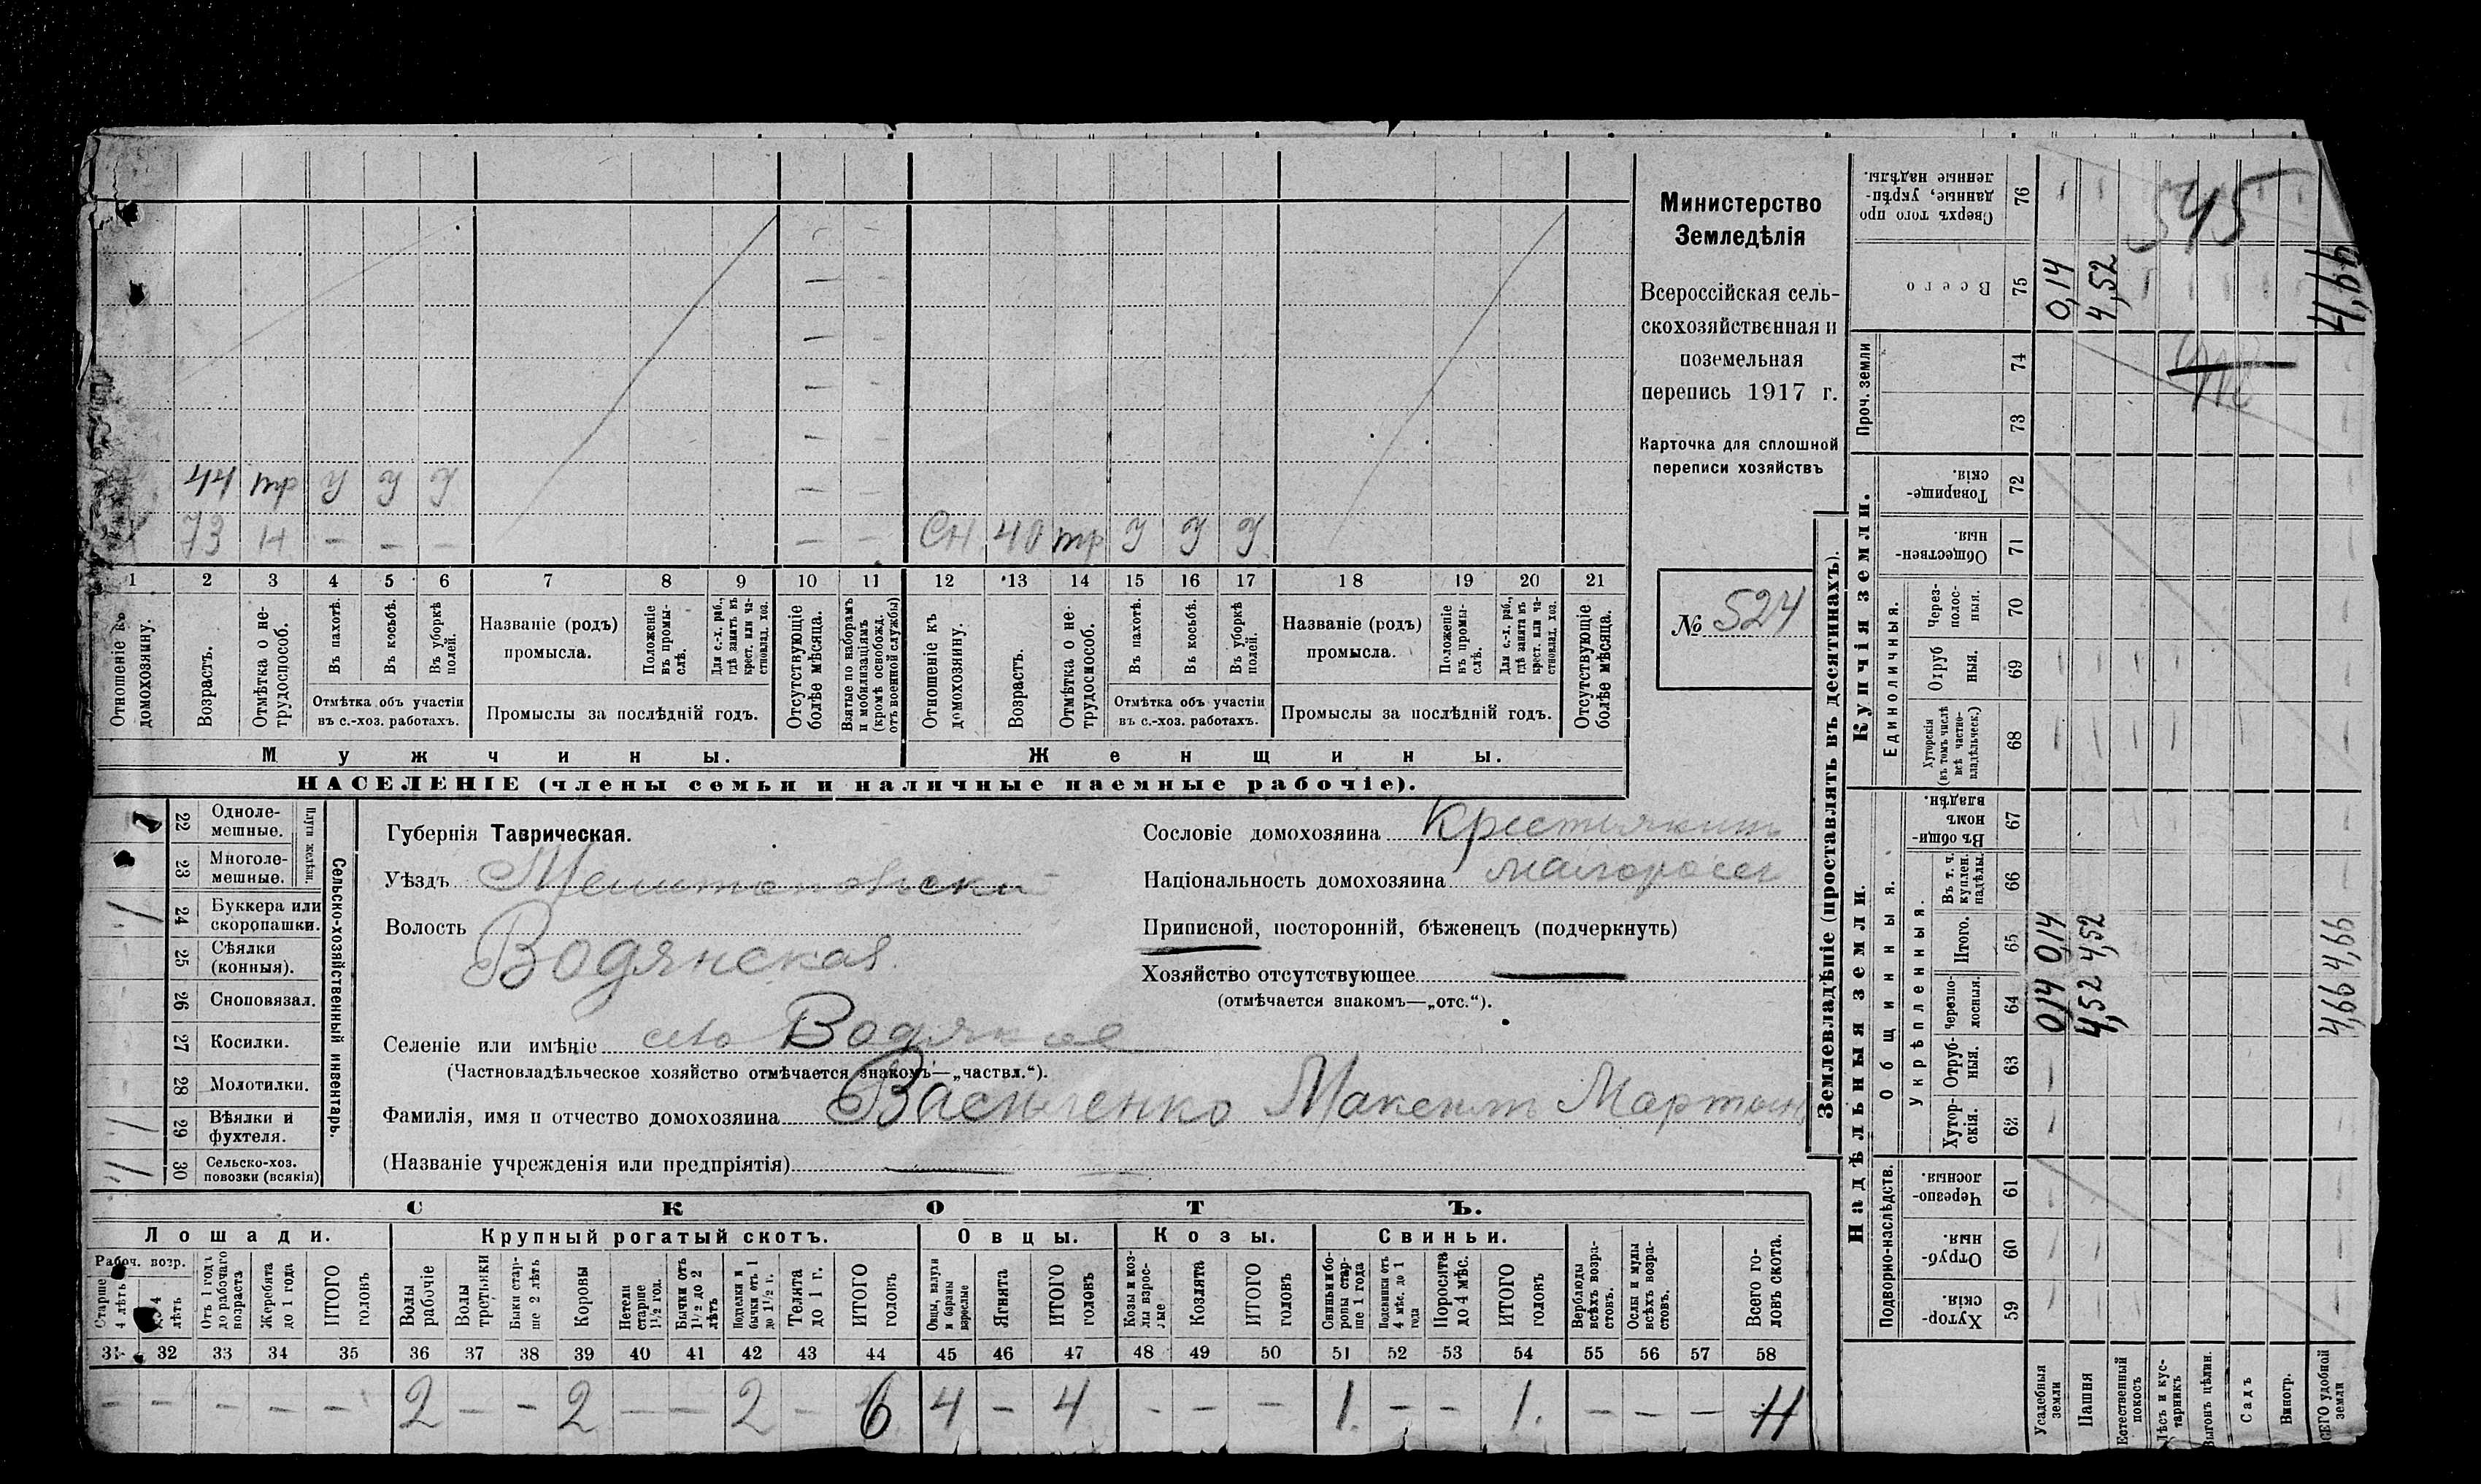 Министерство
Земледѣлія
Всероссійская сель-
скохозяйственная и
поземельная
перепись 1917 г.
Карточка для сплошной
переписи хозяйствъ
№ 524
44 тр У У У
73 Н – – – – –
СН 40 тр У У У
1 2 3 4 5 6 7 8 9 10 11 12 13 14 15 16 17 18 19 20 21
Отношеніе къ домохозяину.
Возрастъ.
Отмѣтка о не-трудоспособ.
Въ пахотѣ.
Въ косьбѣ.
Въ уборкѣ полей.
Отмѣтка объ участіи
въ с.-хоз. работахъ.
Названіе (родъ)
промысла.
Положеніе въ промы-слѣ.
Для с.-х. раб., гдѣ занятъ въ крест. или ча-стновлад. хоз.
Промыслы за послѣдній годъ.
Отсутствующіе болѣе мѣсяца.
Взятые по наборамъ и мобилизаціямъ (кромѣ освобожд. отъ военной службы)
Отношеніе къ домохозяину.
Возрастъ.
Отмѣтка о не-трудоспособ.
Въ пахотѣ.
Въ косьбѣ.
Въ уборкѣ полей.
Отмѣтка объ участіи
въ с.-хоз. работахъ.
Названіе (родъ)
промысла.
Положеніе въ промы-слѣ.
Для с.-х. раб., гдѣ занята въ крест. или ча-стновлад. хоз.
Промыслы за послѣдній годъ.
Отсутствующіе болѣе мѣсяца.
Мужчины.
Женщины.
НАСЕЛЕНІЕ (члены семьи и наличные наемные рабочіе).
22 Одноле-мешные.
23 Многоле-мешные.
Плуги желѣзн.
/ 24 Буккера или скоропашки.
25 Сѣялки (конныя).
26 Сноповязал.
27 Косилки.
28 Молотилки.
1 29 Вѣялки и фухтеля.
1 30 Сельско-хоз. повозки (всякія)
Сельско-хозяйственный инвентарь.
Губернія Таврическая.
Уѣздъ Мелитопольскій
Волость Водянская
Селеніе или имѣніе село Водяное
(Частновладѣльческое хозяйство отмѣчается знакомъ—„частвл.“).
Фамилія, имя и отчество домохозяина Василенко Максимъ Мартын
(Названіе учрежденія или предпріятія)
Сословіе домохозяина Крестьянинъ
Національность домохозяина малоросс
Приписной, посторонній, бѣженецъ (подчеркнуть)
Хозяйство отсутствующее
(отмѣчается знакомъ—„отс.“).
СКОТЪ.
Лошади.
Крупный рогатый скотъ.
Овцы.
Козы.
Свиньи.
Рабоч. возр.
Старше 4 лѣтъ
4 лѣтъ
Отъ 1 года до рабочаго возраста
Жеребята до 1 года
ИТОГО головъ
Волы рабочіе
Волы гостьники
Быки стар-ше 2 лѣтъ
Коровы
Нетели старше 1½ год.
Бычки отъ 1½ до 2 лѣтъ
Подтелки и бычки отъ 1 до 1½ г.
Телята до 1 г.
ИТОГО головъ
Овцы, валухи и бараны взрослые
Ягнята
ИТОГО головъ
Козы и коз-лы взрос-лые
Козлята
ИТОГО головъ
Свиньи и бо-ровы стар-ше 1 года
Подсвинки отъ 4 мѣс. до 1 года
Поросята до 4 мѣс.
ИТОГО головъ
Верблюды всѣхъ возра-стовъ.
Ослы и мулы всѣхъ возра-стовъ.
Всего го-ловъ скота.
31 32 33 34 35 36 37 38 39 40 41 42 43 44 45 46 47 48 49 50 51 52 53 54 55 56 57 58
– – – – – 2 – – 2 – – 2 – 6 4 – 4 – – – 1 – – 1 – – – 11
Землевладѣніе (проставлять въ десятинахъ).
Надѣльныя земли.
Купчія земли.
Проч. земли
Подворно-наслѣдств.
Общинныя.
Укрѣпленныя.
Единоличныя.
59 Хутор-скія.
60 Отруб-ныя.
61 Черезпо-лосныя.
62 Хутор-скія.
63 Отруб-ныя.
64 черезпо-лосныя. 0,14 4,52 4,66
65 Итого. 0,14 4,52 4,66
66 Въ т. ч. куплен. надѣлы.
67 Въ общин-номъ владѣн.
68 Хуторскія (въ томъ числѣ всѣ частно-владѣльческ.)
69 Отруб ныя.
70 Черезполос-ныя.
71 Обществен-ныя.
72 Товарище-скія.
73
74
75 Всего 0,14 4,52 4,66
76 Сверхъ того про данные, укрѣп-ленные надѣлы.
545
Усадебныя земли
Пашня
Естественный покосъ
Лѣсъ и кус-тарникъ
Выгонъ цѣлин.
Садъ
Виногр.
ВСЕГО удобной земли